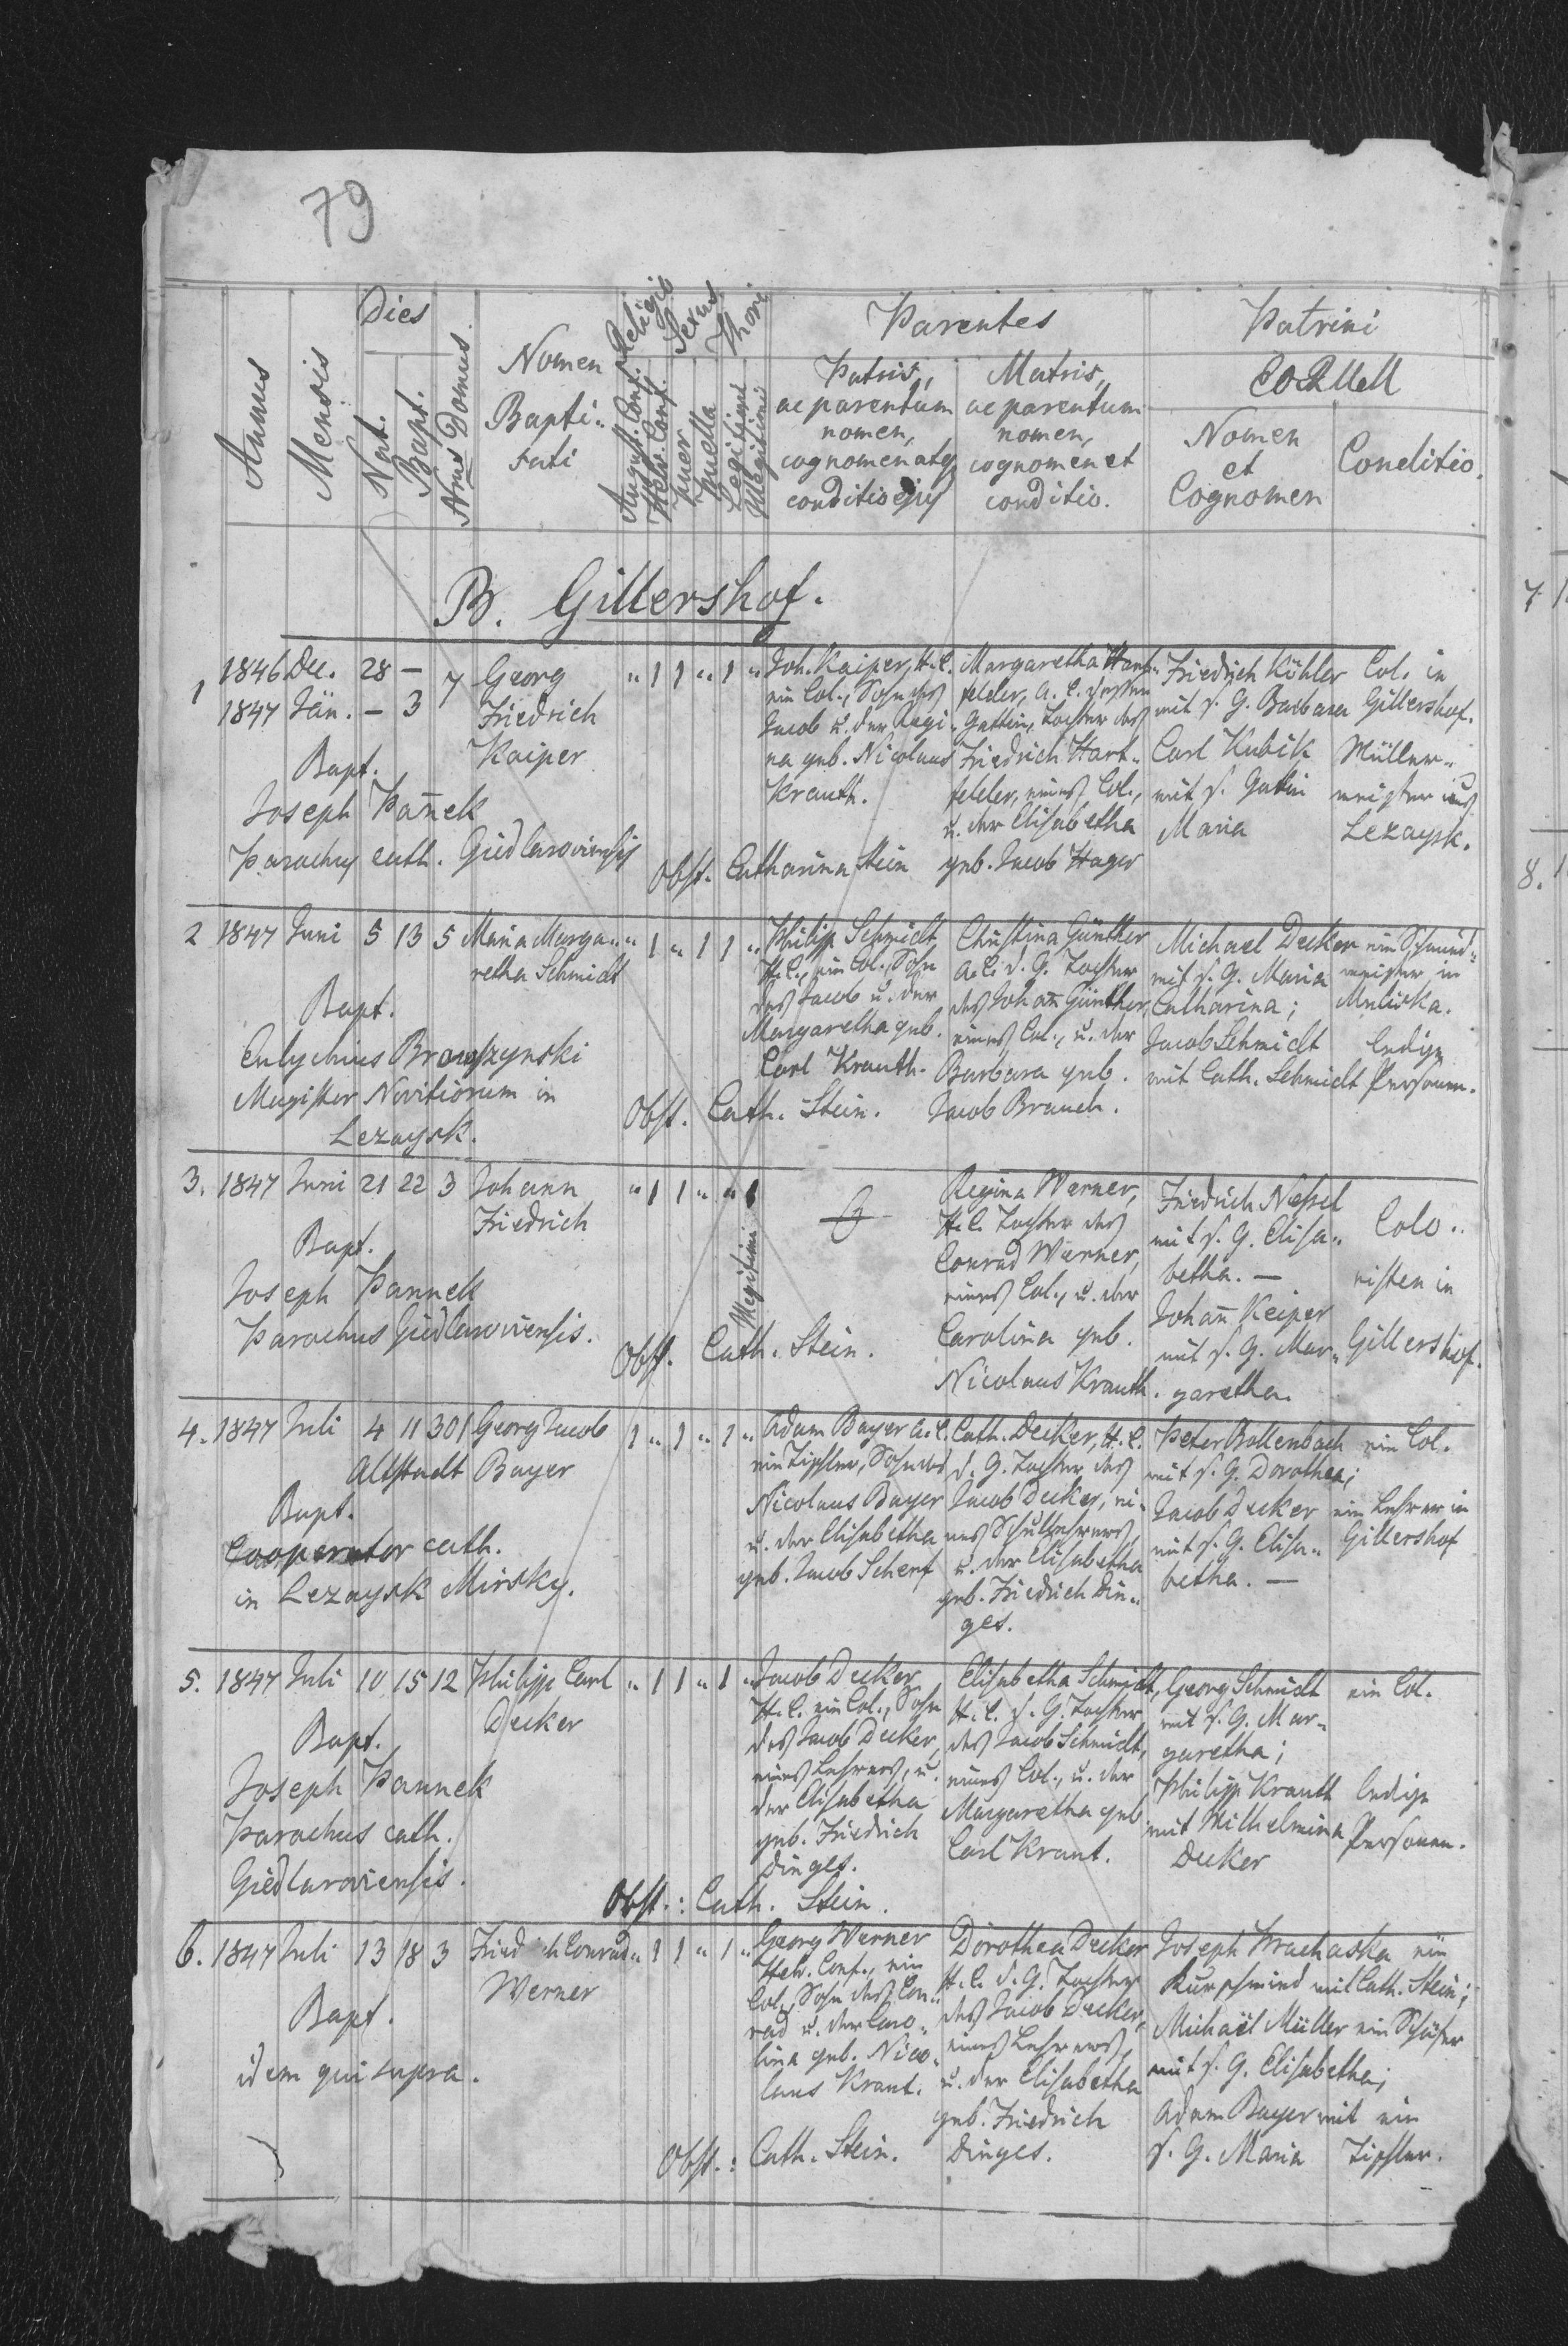 79
Annus
Mensis
Dies
Nat.
Bapt.
Nrus Domus
Nomen
Bapti-
sati
Religio
August. Conf.
Helv. Conf.
Sexus
Puer
Puella
Thori
Legitimi
Illegitimi
Parentes
Patris,
ac parentum
nomen,
cognomen atq
conditio ejus
Matris,
ac parentum
nomen,
cognomen et
conditio.
Patrini
Nomen
et
Cognomen
Conditio.
B. Gillershof.
1 1846 Dec. 28 – 7 Georg " 1 1 " 1 "
1847 Jän. – 3 Friedrich
Kaiper
Bapt.
Joseph Pan̄ek
Parochus cath. Giedlaroviensis
Joh. Kaiper, H.C.
ein Col., Sohn des
Jacob u. der Regi-
na geb. Nicolaus
Krauth.
Obst. Catharina Stein
Margaretha Hart-
felder, A. C. dessen
Gattin, Tochter des
Friedrich Hart-
felder, eines Col.,
u. der Elisabetha
geb. Jacob Hager
Friedrich Köhler Col. in
mit s. G. Barbara Gillershof.
Carl Kubik Müller-
mit s. Gattin meister aus
Maria Lezaysk.
2 1847 Juni 5 13 5 Maria Marga- " 1 " 1 1 "
retha Schmidt
Bapt.
Magister Novitiorum in
Lezaysk.
Philipp Schmidt
H.C., ein Col., Sohn
des Jacob u. der
Margaretha geb.
Carl Krauth.
Obst. Cath. Stein.
Christina Günther
A.C. d. G. Tochter
des Johan̄ Günther,
eines Col., u. der
Barbara geb.
Jacob Brauch.
Michael Decker ein Schmied-
mit s. G. Maria meister in
Catharina;
Jacob Schmidt ledige
mit Cath. Schmidt Personen.
3. 1847 Juni 21 22 3 Johann " 1 1 " " 1
Friedrich
Illegitimi
Bapt.
Joseph Pannek
Parochus Giedlaroviensis.
Obst. Cath. Stein.
Regina Werner,
H.C. Tochter des
Conrad Werner,
eines Col., u. der
Carolina geb.
Nicolaus Krauth.
Friedrich Nessel
mit s. G. Elisa- Colo-
betha. – nisten in
Johan̄ Keiper
mit s. G. Mar- Gillershof.
garetha.
4. 1847 Juli 4 11 301 Georg Jacob 1 " 1 " 1 "
Altstadt Bayer
Bapt.
Cooperator cath.
in Lezaysk Mirsky.
Adam Bayer A.C.
ein Tischler, Sohn des
Nicolaus Bayer
u. der Elisabetha
geb. Jacob Scherf
Cath. Decker, H.C.
d. G. Tochter des
Jacob Decker, ei-
nes Schullehrers,
u. der Elisabetha
geb. Friedrich Din-
ges.
Peter Bollenbach ein Col.
mit s. G. Dorothea;
Jacob Decker ein Lehrer in
mit s. G. Elisa- Gillershof
betha. –
5. 1847 Juli 10 15 12 Philipp Carl " 1 1 " 1 "
Decker
Bapt.
Joseph Pannek
Parochus cath.
Giedlaroviensis.
Jacob Decker
H.C. ein Col., Sohn
des Jacob Decker,
eines Lehrers, u.
der Elisabetha
geb. Friedrich
Dinges.
Obst.: Cath. Stein.
Elisabetha Schmidt,
H.C. d. G. Tochter
des Jacob Schmidt,
eines Col., u. der
Margaretha geb.
Carl Kraut.
Georg Schmidt ein Col.
mit s. G. Mar-
garetha;
Philipp Krauth ledige
mit Wilhelmina Personen.
Decker
6. 1847 Juli 13 18 3 Friedrich Conrad " 1 1 " 1 "
Werner
Bapt.
idem qui supra.
Georg Werner
Helv. Conf., ein
Col., Sohn des Con-
rad u. der Caro-
lina geb. Nico-
laus Kraut.
Obst.: Cath. Stein.
Dorothea Decker
H.C. d. G. Tochter
des Jacob Decker,
eines Lehrers,
u. der Elisabetha
geb. Friedrich
Dinges.
Joseph ein
Kurschmied mit Cath. Stein;
Michaël Müller ein Schäfer
mit s. G. Elisabetha;
Adam Bayer mit ein
s. G. Maria Tischler.
7
8.